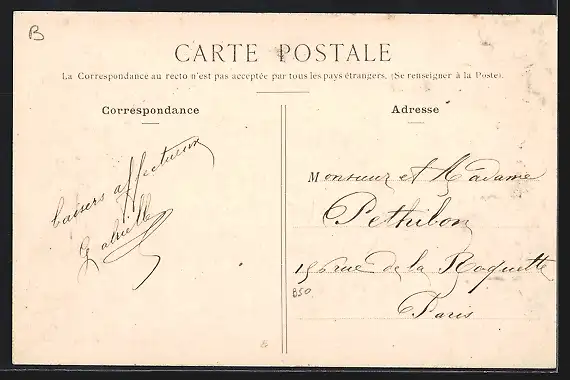 B
CARTE POSTALE
La Correspondance au recto n'est pas acceptée par tous les pays étrangers. (Se renseigner à la Poste).
Correspondance
baisers affectueux
Gabrielle
Adresse
Monsieur et Madame
Pethibon
156 rue de la Roquette
B50
Paris